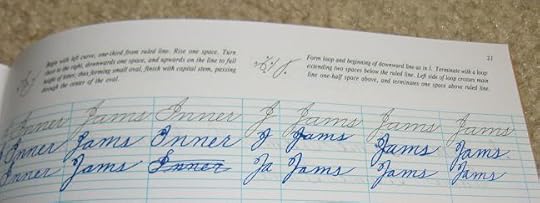 21
Begin with left curve, one-third from ruled line. Rise one space. Turn
short to the right, downwards one space, and upwards on the line to full
height of letter, thus forming small oval, finish with capital stem, passing
through the center of the oval.
Form loop and beginning of downward line as in I. Terminate with a loop
extending two spaces below the ruled line. Left side of loop crosses main
line one-half space above, and terminates one space above ruled line.
Inner Jams Inner J Jams Jams Jams
Inner Jams Inner J Jams Jams Jams
Inner Jams Inner Ja Jams Jams Jams